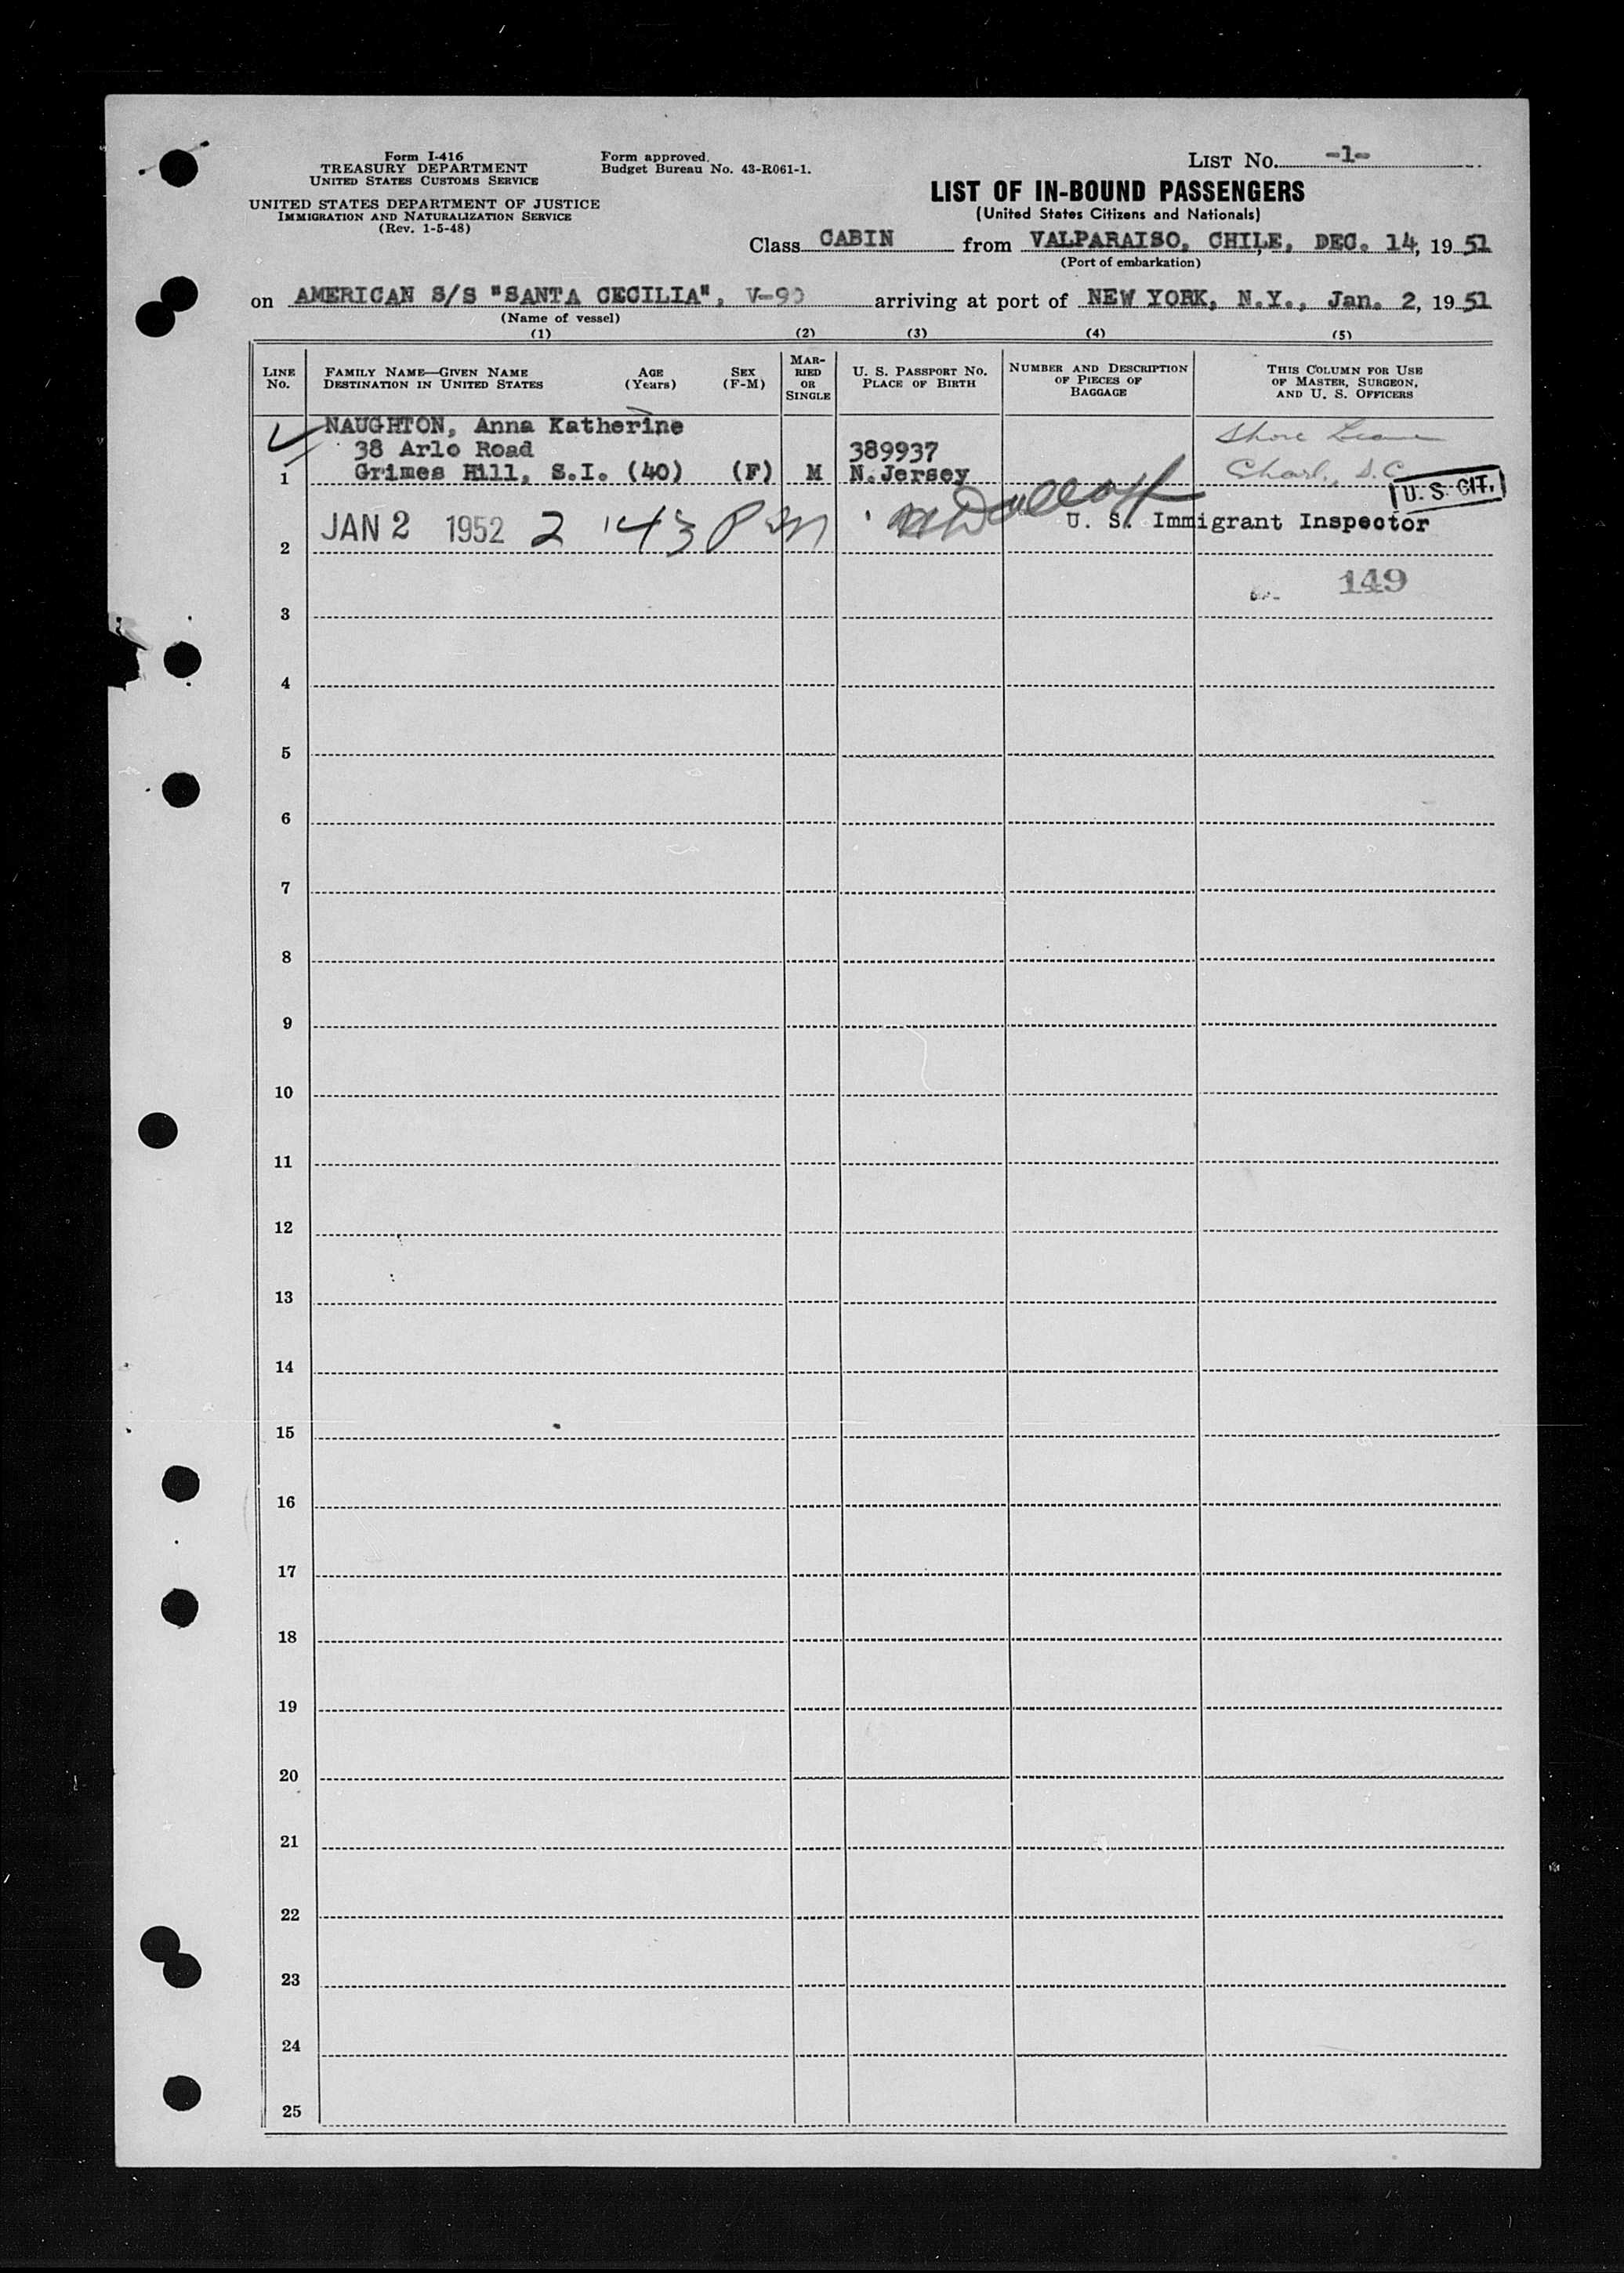 Form I-416
TREASURY DEPARTMENT
UNITED STATES CUSTOMS SERVICE
UNITED STATES DEPARTMENT OF JUSTICE
IMMIGRATION AND NATURALIZATION SERVICE
(Rev. 1-5-48)
Form approved.
Budget Bureau No. 43-R061-1.
LIST NO. -1-
LIST OF IN-BOUND PASSENGERS
(United States Citizens and Nationals)
Class CABIN from VALPARAISO, CHILE, DEC. 14, 19 51
(Port of embarkation)
on AMERICAN S/S "SANTA CECILIA", V-90 arriving at port of NEW YORK, N.Y., Jan. 2, 19 51
(Name of vessel)
(1) (2) (3) (4) (5)
LINE NO.
FAMILY NAME—GIVEN NAME AGE SEX
DESTINATION IN UNITED STATES (Years) (F-M)
MARRIED OR SINGLE
U. S. PASSPORT NO.
PLACE OF BIRTH
NUMBER AND DESCRIPTION
OF PIECES OF
BAGGAGE
THIS COLUMN FOR USE
OF MASTER, SURGEON,
AND U. S. OFFICERS
NAUGHTON, Anna Katherine
38 Arlo Road 389937
1 Grimes Hill, S.I. (40) (F) M N.Jersey
Shore Leave
Charl., S.C.
U. S. CIT.
JAN 2 1952 2 43 PM
U. S. Immigrant Inspector
2
149
3
4
5
6
7
8
9
10
11
12
13
14
15
16
17
18
19
20
21
22
23
24
25